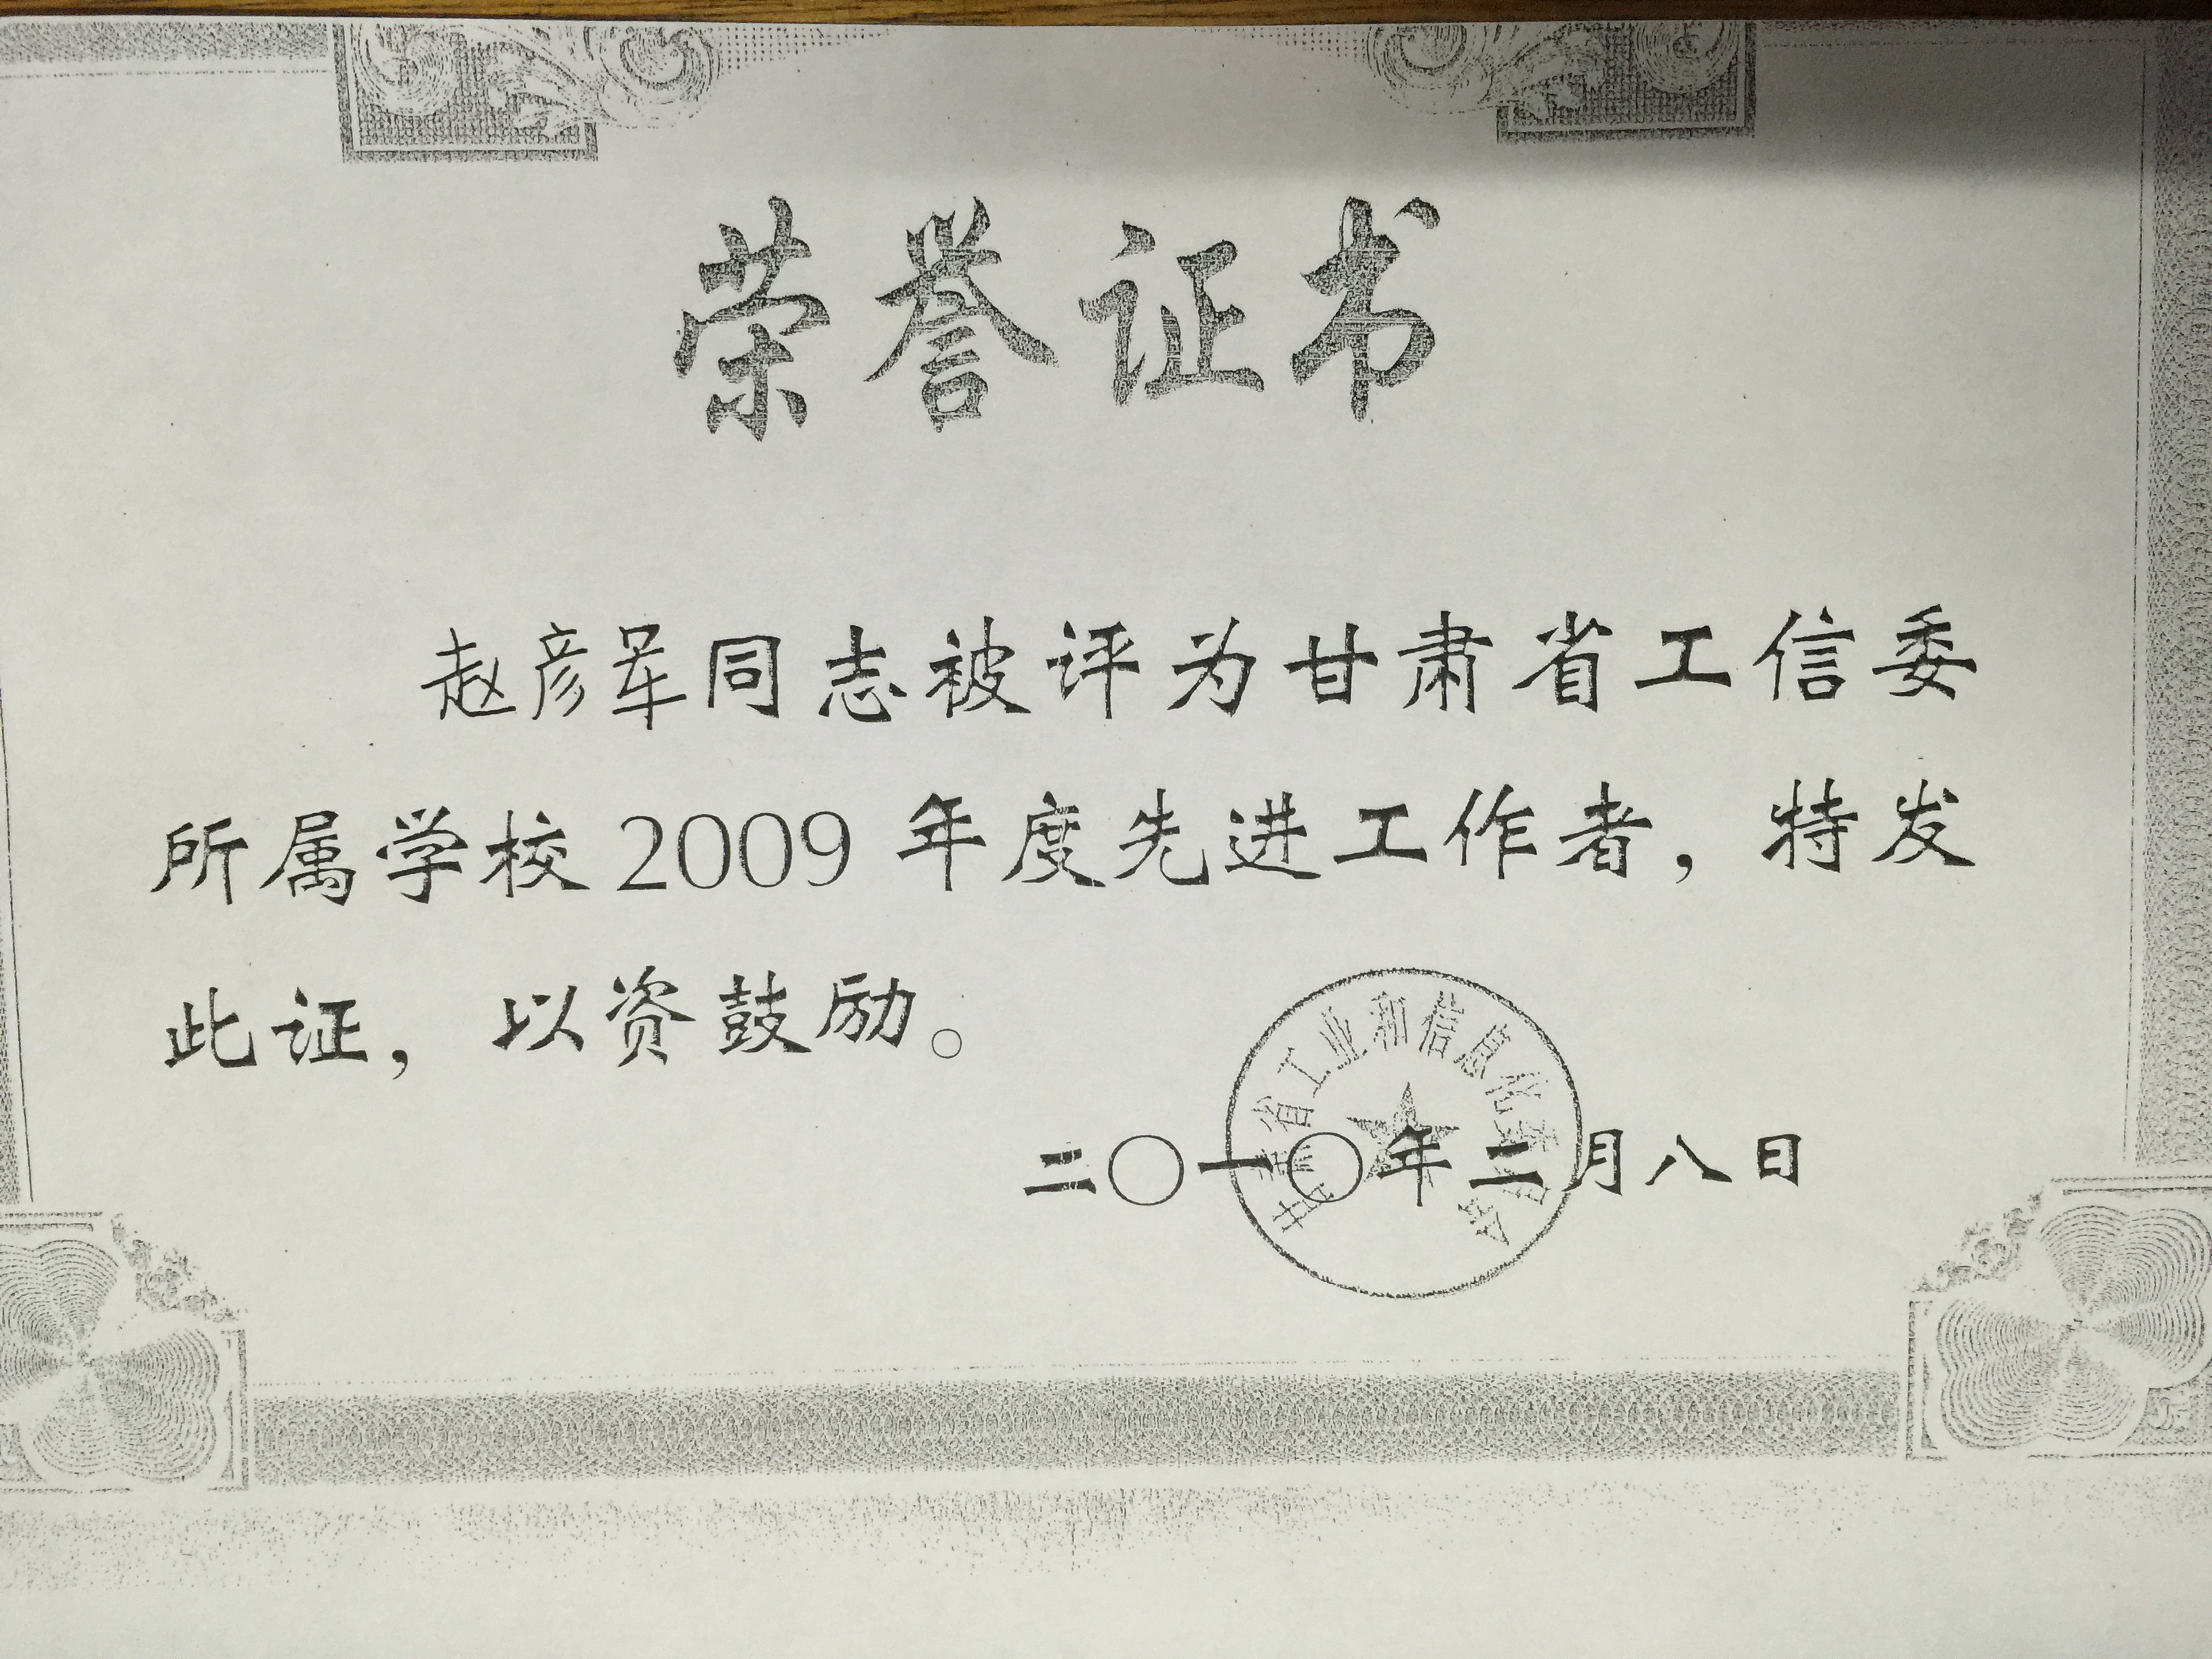 荣誉证书
赵彦军同志被评为甘肃省工信委
所属学校2009年度先进工作者，特发
此证，以资鼓励。
甘肃省工业和信息化委员会
二〇一〇年二月八日